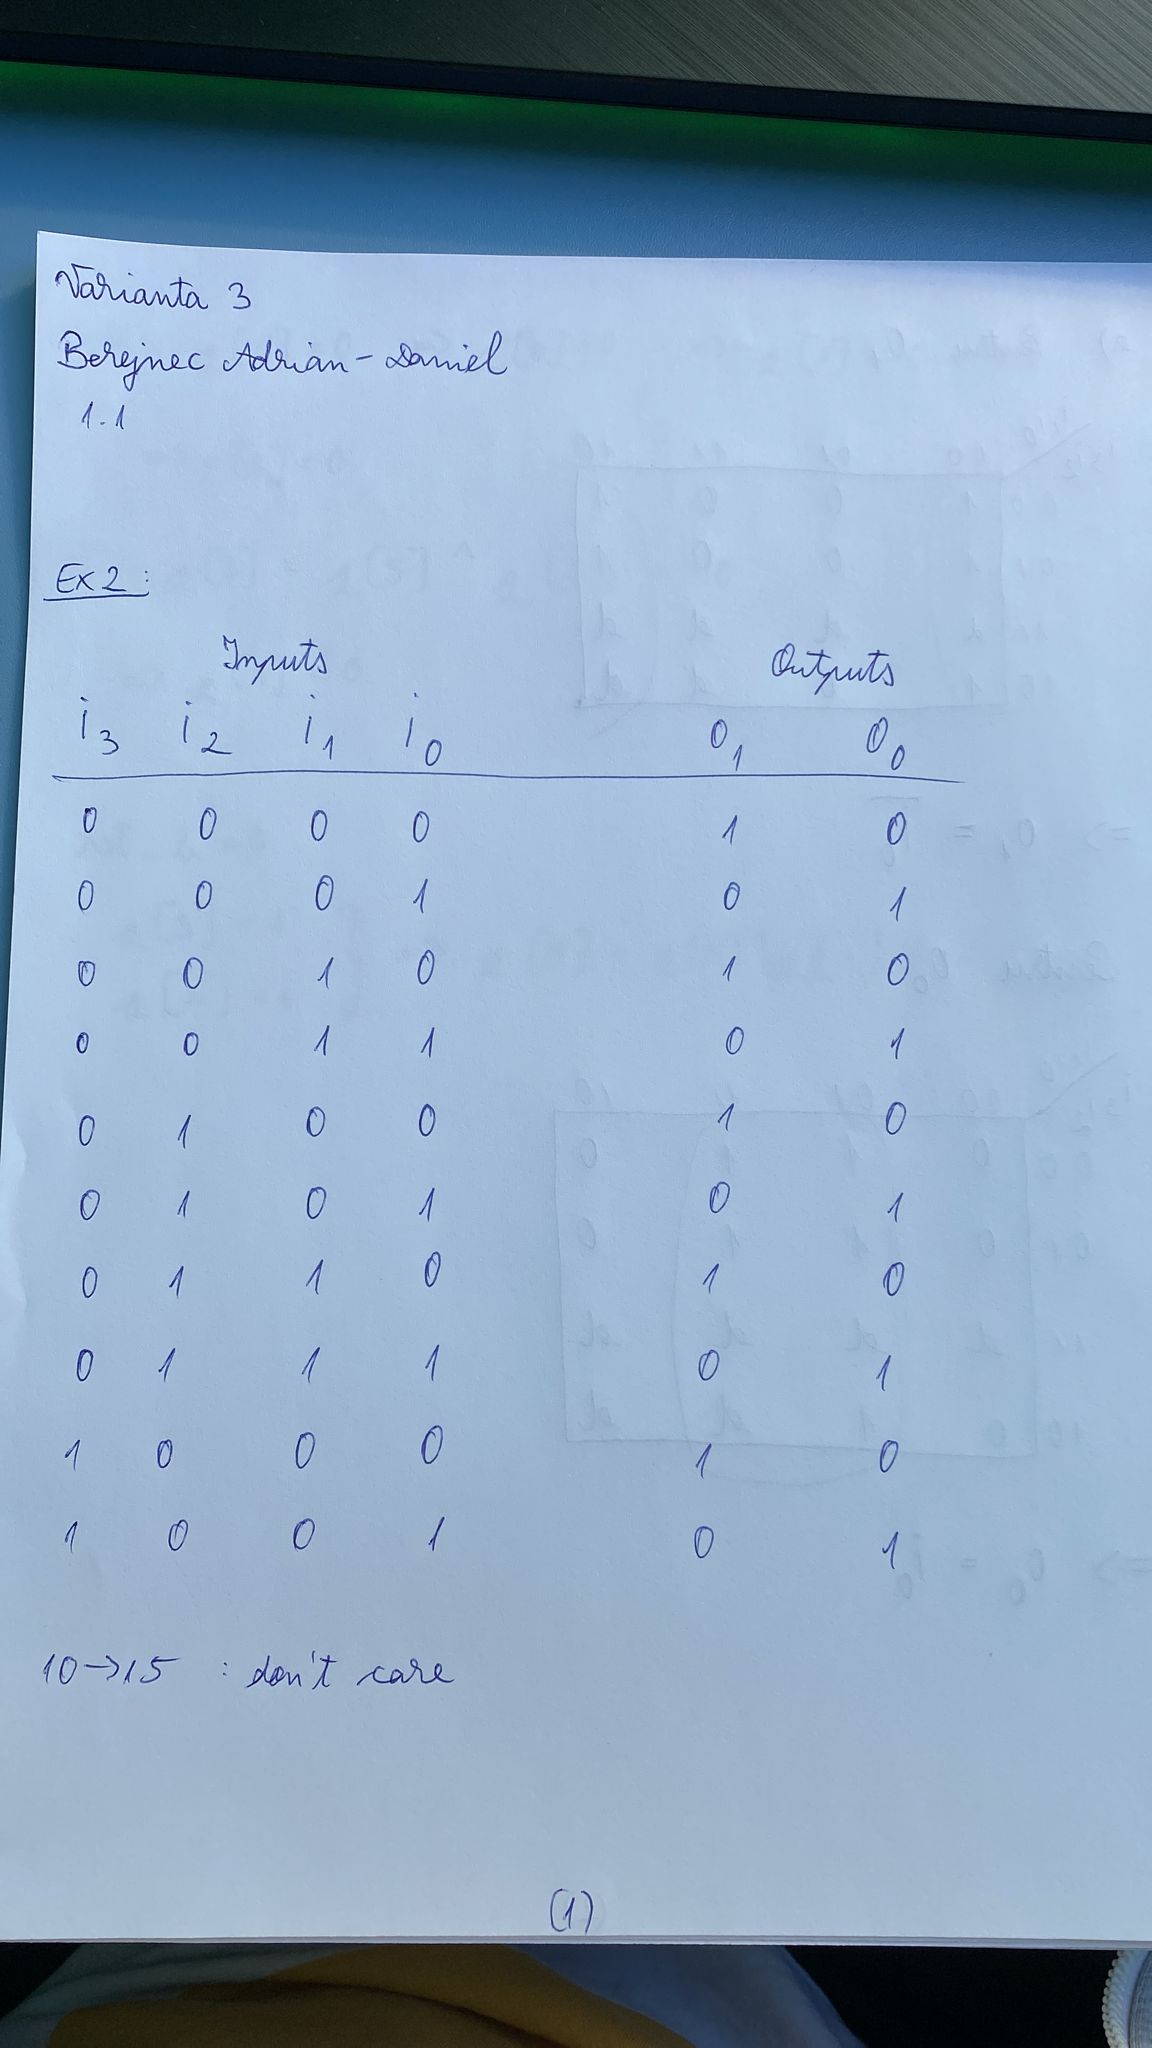 Varianta 3
Berejnec Adrian-Daniel
1.1
Ex2:
Inputs Outputs
i3 i2 i1 i0 O1 O0
0 0 0 0 1 0
0 0 0 1 0 1
0 0 1 0 1 0
0 0 1 1 0 1
0 1 0 0 1 0
0 1 0 1 0 1
0 1 1 0 1 0
0 1 1 1 0 1
1 0 0 0 1 0
1 0 0 1 0 1
10->15 : don't care
(1)